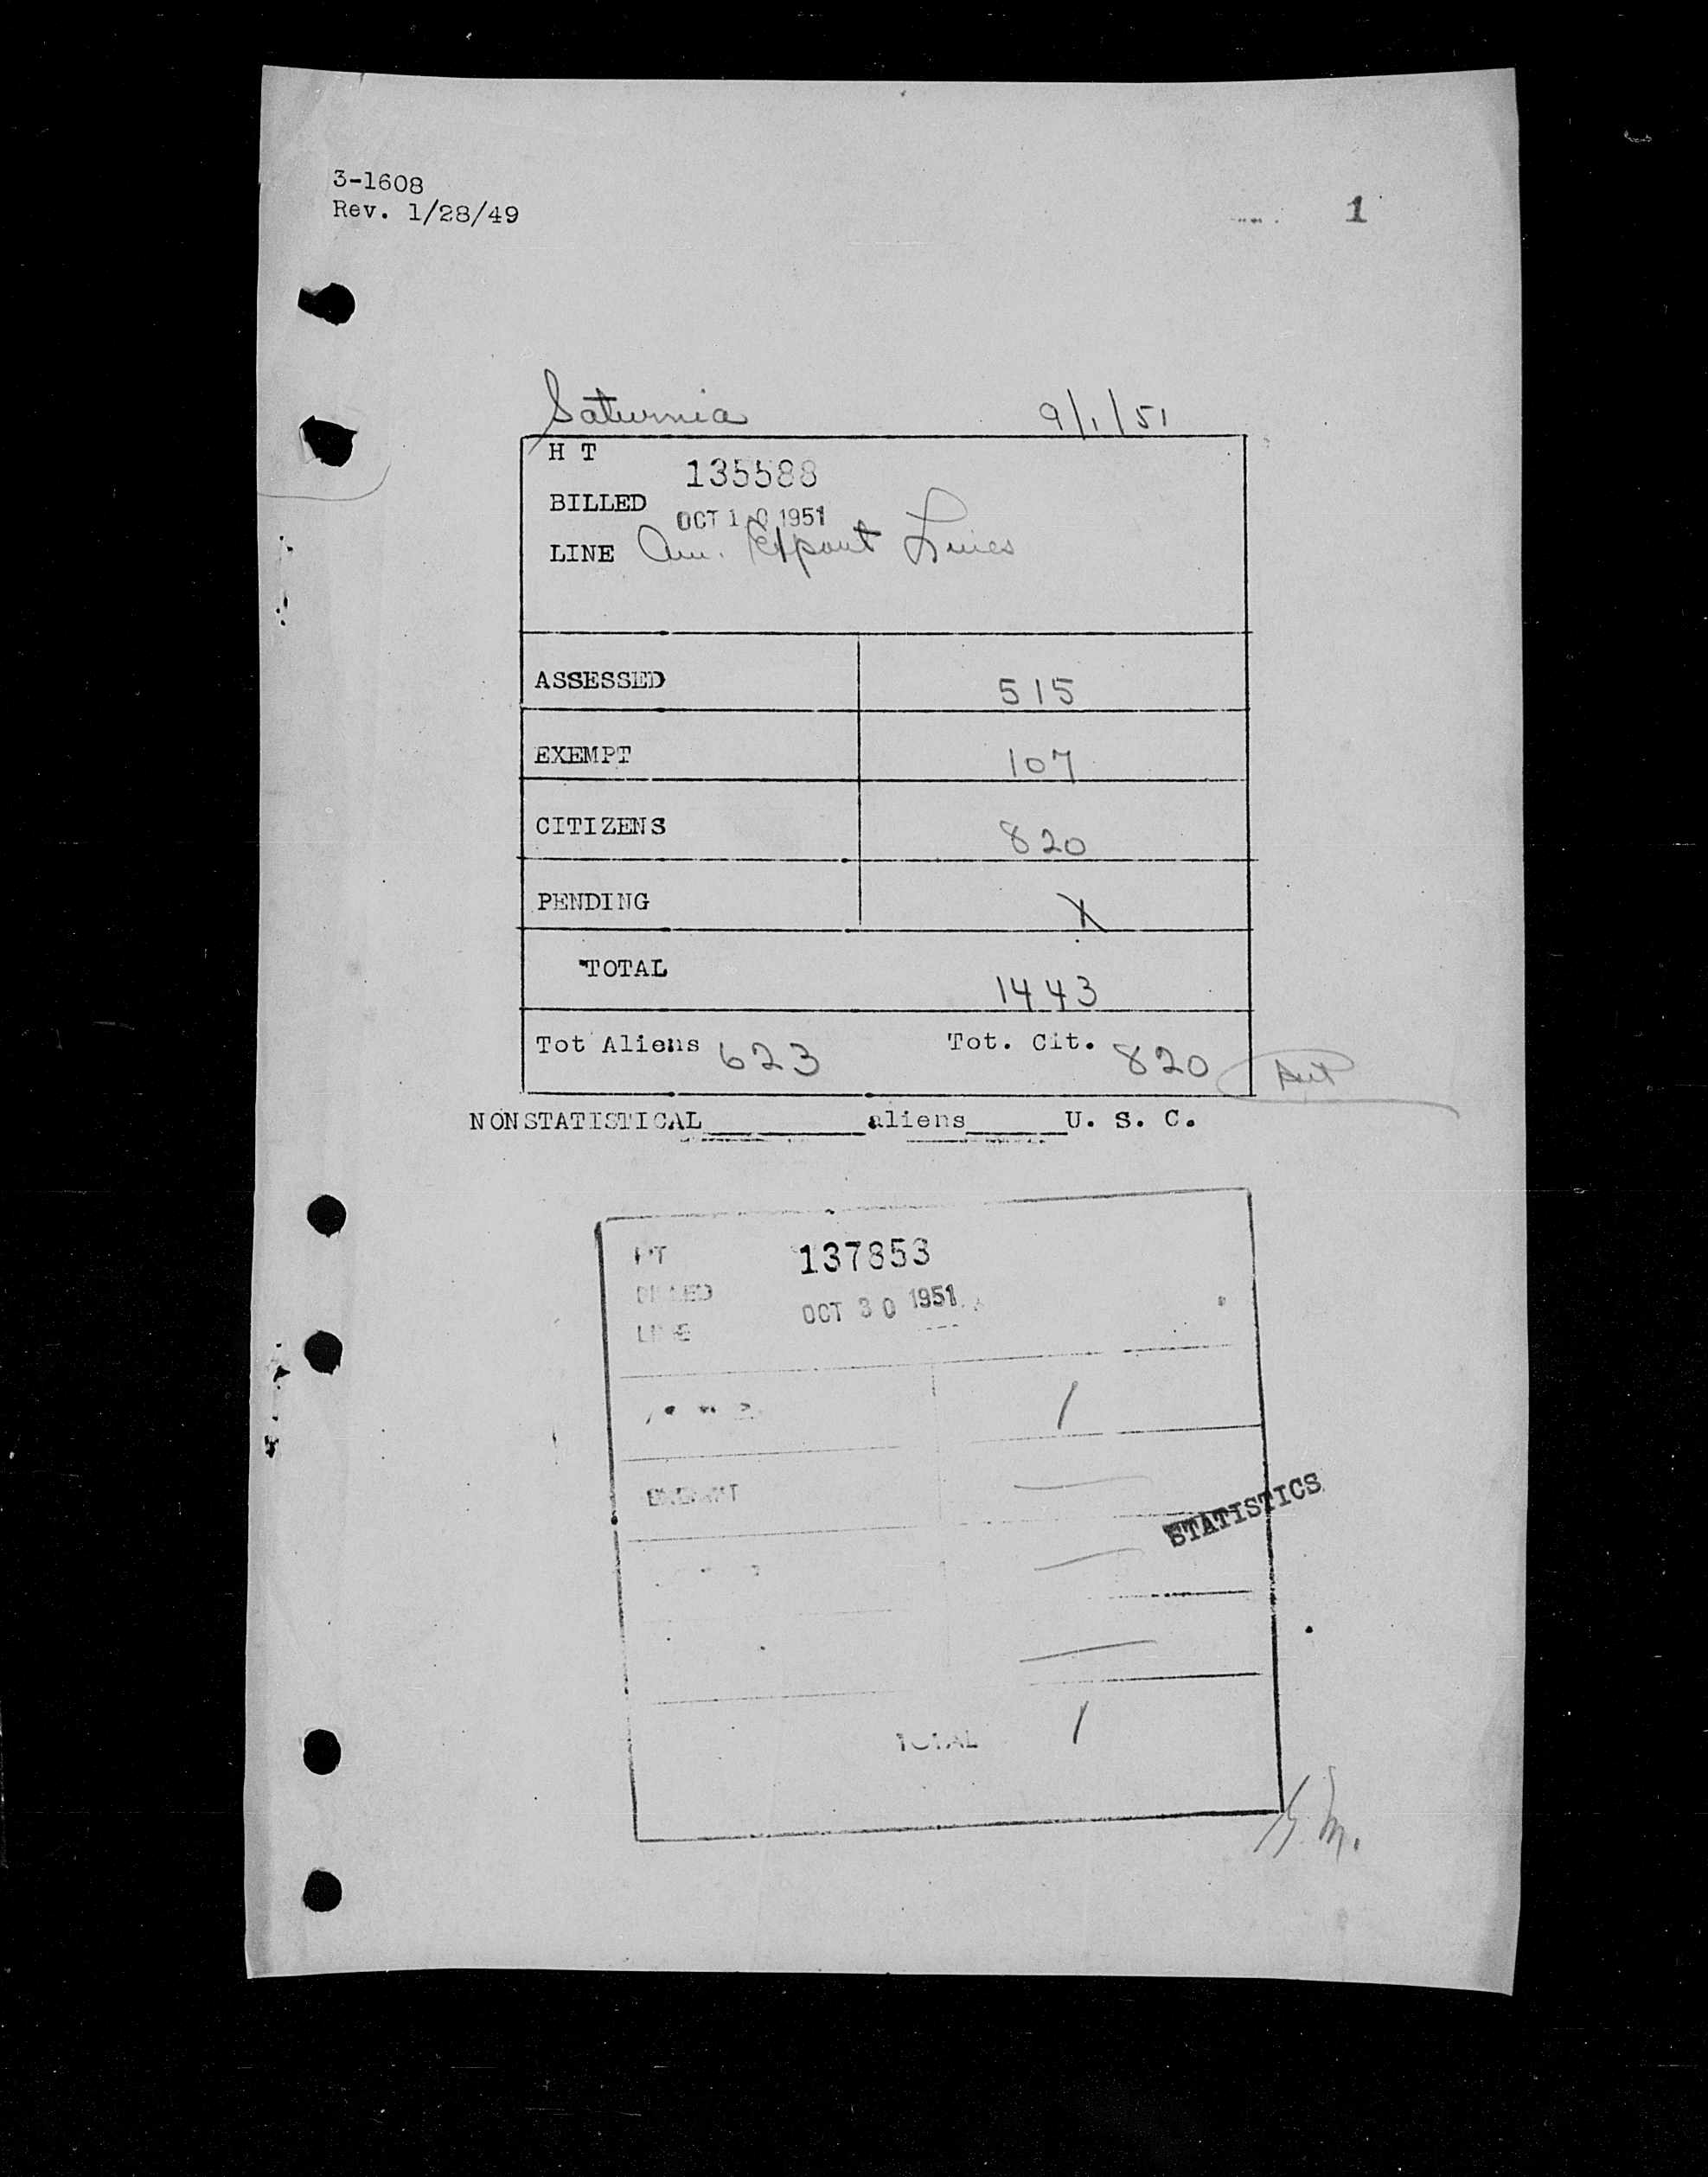 3-1608
Rev. 1/28/49
1
Saturnia 9/1/51
H T 135588
BILLED OCT 10 1951
LINE Am. Export Lines
ASSESSED 515
EXEMPT 107
CITIZENS 820
PENDING X
TOTAL 1443
Tot Aliens 623 Tot. Cit. 820
NONSTATISTICAL__________aliens______U. S. C.
HT 137853
BILLED OCT 30 1951
LINE
1
EXEMPT —
STATISTICS
—
—
TOTAL 1